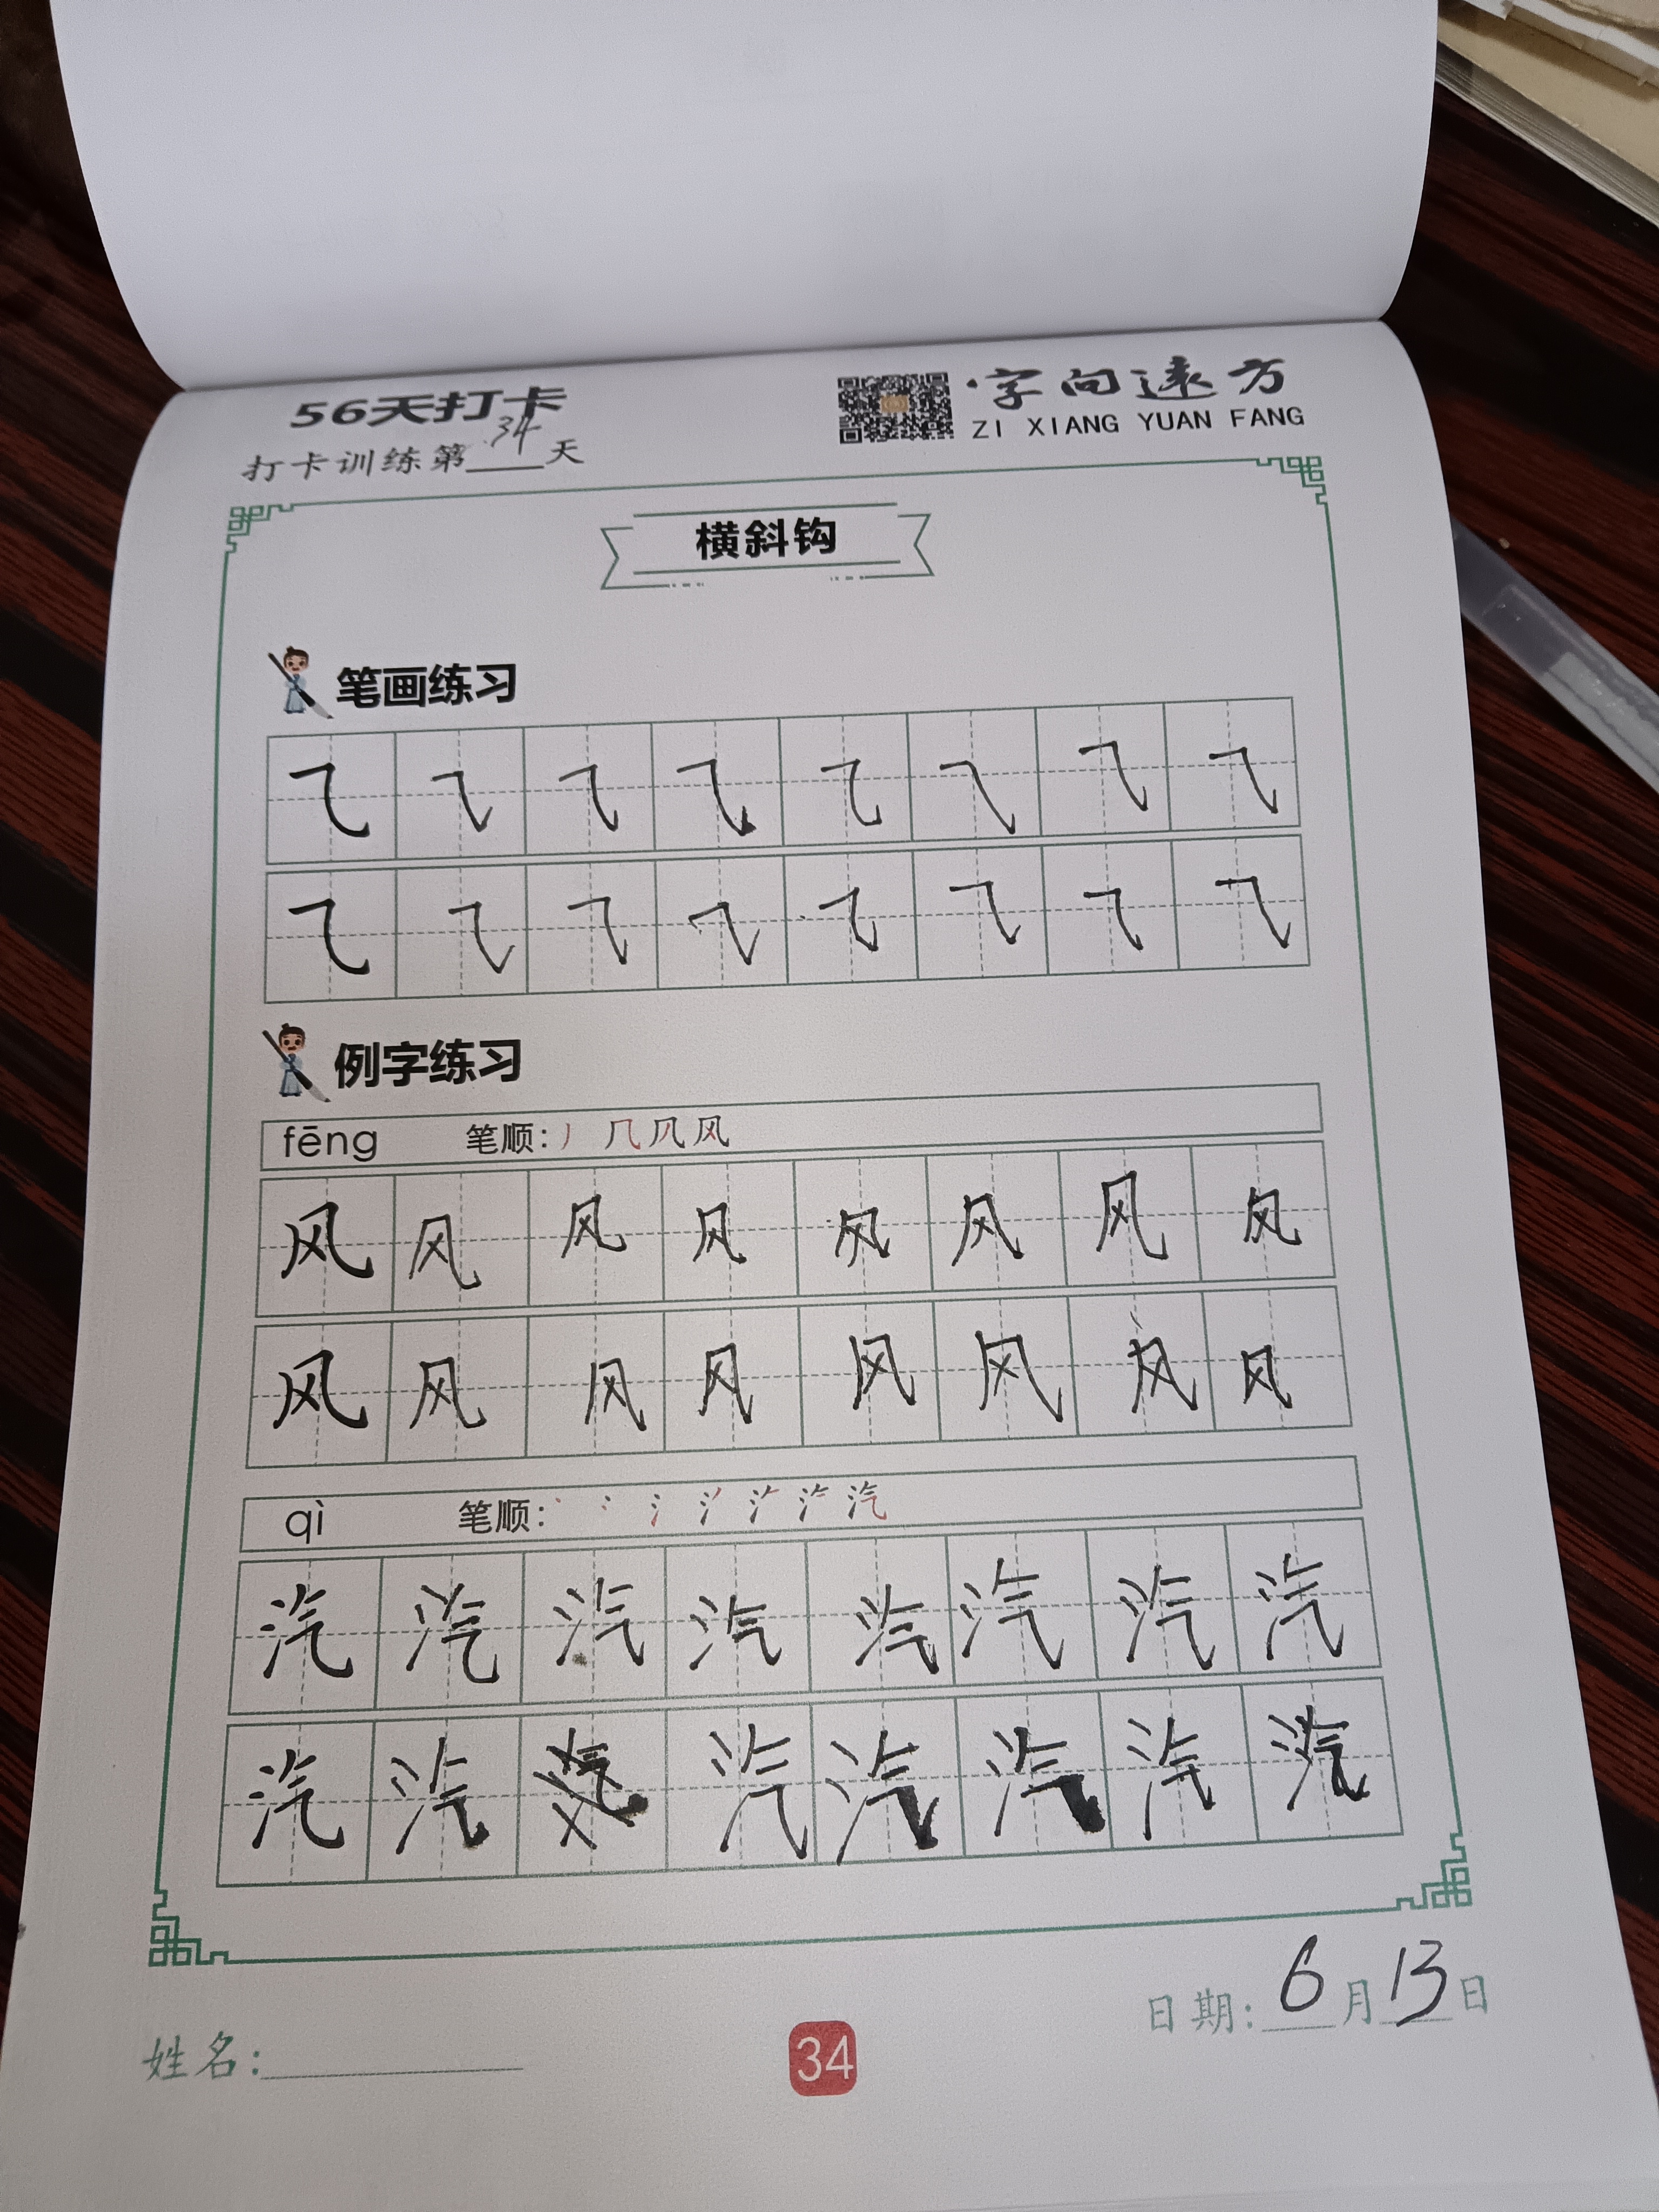 56天打卡
打卡训练第34天
字向远方
ZI XIANG YUAN FANG
横斜钩
笔画练习
⺄ ⺄ ⺄ ⺄ ⺄ ⺄ ⺄ ⺄
⺄ ⺄ ⺄ ⺄ ⺄ ⺄ ⺄ ⺄
例字练习
fēng 笔顺: 丿 ⺇ 风
风 风 风 风 风 风 风 风
风 风 风 风 风 风 风 风
qì 笔顺: 丶 冫 氵 汽
汽 汽 汽 汽 汽 汽 汽 汽
汽 汽 汽 汽 汽 汽 汽
日期: 6月13日
姓名:
34